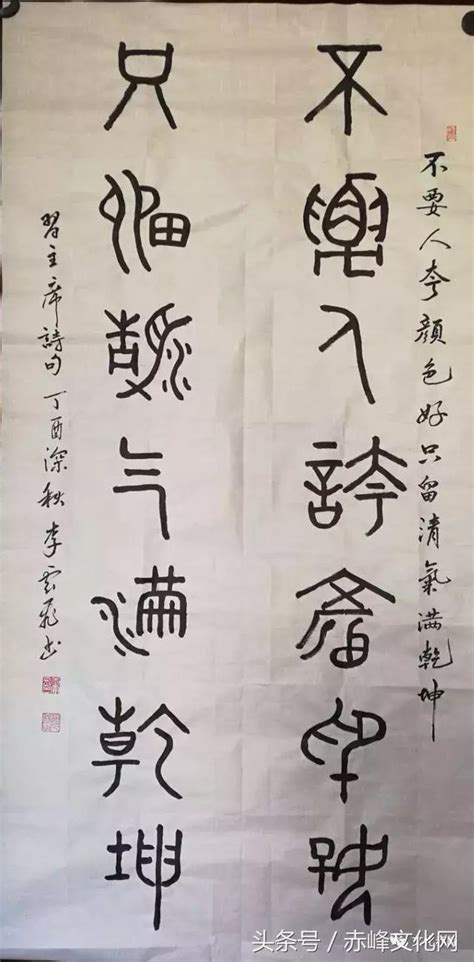 不要人夸顔色好只留清氣满乾坤
不要人誇顔色好
只留清气滿乾坤
習主席詩句丁酉深秋李雲飛书
头条号/赤峰文化网